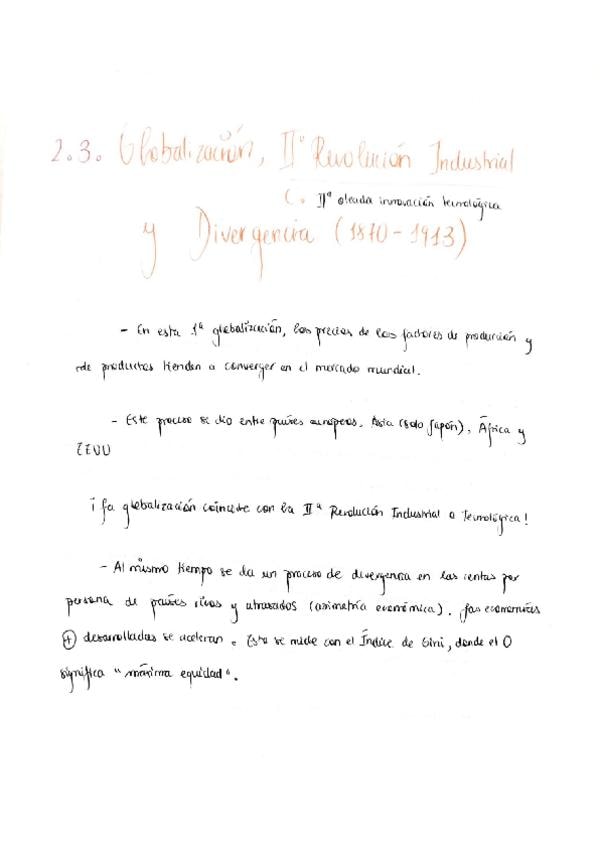 2.3. Globalización, IIª Revolución Industrial
IIª oleada innovación tecnológica
y Divergencia (1870-1913)
- En esta 1ª globalización, los precios de los factores de producción y
de productos tienden a converger en el mercado mundial.
- Este proceso se dio entre países europeos, Asia (solo Japón), África y
EEUU
¡La globalización coincide con la IIª Revolución Industrial o tecnológica!
- Al mismo tiempo se da un proceso de divergencia en las rentas por
persona de países ricos y atrasados (asimetría económica). Las economías
+ desarrolladas se aceleran. Esto se mide con el Índice de Gini, donde el 0
significa "máxima equidad".